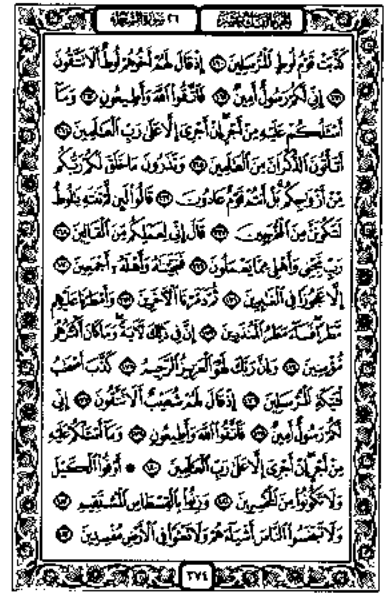 الجزء التاسع عشر ٢٦ سورة الشعراء
كَذَّبَتْ قَوْمُ لُوطٍ ٱلْمُرْسَلِينَ ١٦٠ إِذْ قَالَ لَهُمْ أَخُوهُمْ لُوطٌ أَلَا تَتَّقُونَ
١٦١ إِنِّي لَكُمْ رَسُولٌ أَمِينٌ ١٦٢ فَٱتَّقُوا۟ ٱللَّهَ وَأَطِيعُونِ ١٦٣ وَمَآ
أَسْـَٔلُكُمْ عَلَيْهِ مِنْ أَجْرٍ إِنْ أَجْرِىَ إِلَّا عَلَىٰ رَبِّ ٱلْعَـٰلَمِينَ ١٦٤
أَتَأْتُونَ ٱلذُّكْرَانَ مِنَ ٱلْعَـٰلَمِينَ ١٦٥ وَتَذَرُونَ مَا خَلَقَ لَكُمْ رَبُّكُم
مِّنْ أَزْوَٰجِكُم بَلْ أَنتُمْ قَوْمٌ عَادُونَ ١٦٦ قَالُوا۟ لَئِن لَّمْ تَنتَهِ يَـٰلُوطُ
لَتَكُونَنَّ مِنَ ٱلْمُخْرَجِينَ ١٦٧ قَالَ إِنِّي لِعَمَلِكُم مِّنَ ٱلْقَالِينَ ١٦٨
رَبِّ نَجِّنِي وَأَهْلِي مِمَّا يَعْمَلُونَ ١٦٩ فَنَجَّيْنَـٰهُ وَأَهْلَهُۥٓ أَجْمَعِينَ ١٧٠
إِلَّا عَجُوزًا فِى ٱلْغَـٰبِرِينَ ١٧١ ثُمَّ دَمَّرْنَا ٱلْـَٔاخَرِينَ ١٧٢ وَأَمْطَرْنَا عَلَيْهِم
مَّطَرًا فَسَآءَ مَطَرُ ٱلْمُنذَرِينَ ١٧٣ إِنَّ فِى ذَٰلِكَ لَـَٔايَةً وَمَا كَانَ أَكْثَرُهُم
مُّؤْمِنِينَ ١٧٤ وَإِنَّ رَبَّكَ لَهُوَ ٱلْعَزِيزُ ٱلرَّحِيمُ ١٧٥ كَذَّبَ أَصْحَـٰبُ
لْـَٔيْكَةِ ٱلْمُرْسَلِينَ ١٧٦ إِذْ قَالَ لَهُمْ شُعَيْبٌ أَلَا تَتَّقُونَ ١٧٧ إِنِّي
لَكُمْ رَسُولٌ أَمِينٌ ١٧٨ فَٱتَّقُوا۟ ٱللَّهَ وَأَطِيعُونِ ١٧٩ وَمَآ أَسْـَٔلُكُمْ عَلَيْهِ
مِنْ أَجْرٍ إِنْ أَجْرِىَ إِلَّا عَلَىٰ رَبِّ ٱلْعَـٰلَمِينَ ١٨٠ أَوْفُوا۟ ٱلْكَيْلَ
وَلَا تَكُونُوا۟ مِنَ ٱلْمُخْسِرِينَ ١٨١ وَزِنُوا۟ بِٱلْقِسْطَاسِ ٱلْمُسْتَقِيمِ ١٨٢
وَلَا تَبْخَسُوا۟ ٱلنَّاسَ أَشْيَآءَهُمْ وَلَا تَعْثَوْا۟ فِى ٱلْأَرْضِ مُفْسِدِينَ ١٨٣
٣٧٤